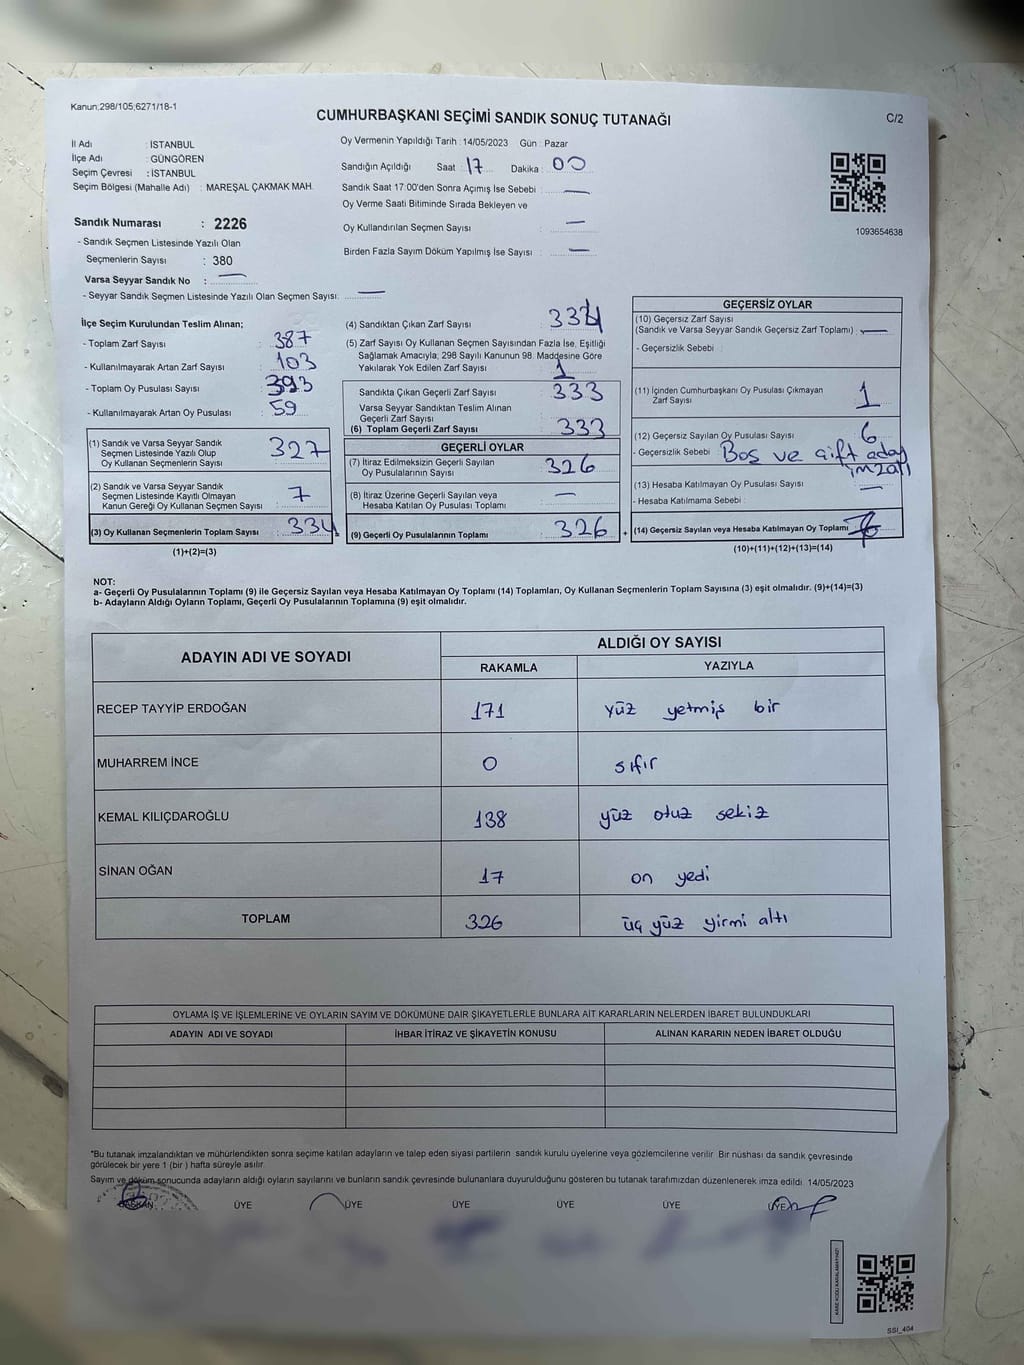 Kanun;298/105;6271/18-1
CUMHURBAŞKANI SEÇİMİ SANDIK SONUÇ TUTANAĞI
C/2
İl Adı : İSTANBUL
İlçe Adı : GÜNGÖREN
Seçim Çevresi : İSTANBUL
Seçim Bölgesi (Mahalle Adı) : MAREŞAL ÇAKMAK MAH.
Sandık Numarası : 2226
- Sandık Seçmen Listesinde Yazılı Olan
Seçmenlerin Sayısı : 380
Varsa Seyyar Sandık No : —
- Seyyar Sandık Seçmen Listesinde Yazılı Olan Seçmen Sayısı: —
Oy Vermenin Yapıldığı Tarih : 14/05/2023 Gün : Pazar
Sandığın Açıldığı Saat 17 Dakika : 00
Sandık Saat 17:00'den Sonra Açımış İse Sebebi : —
Oy Verme Saati Bitiminde Sırada Bekleyen ve
Oy Kullandırılan Seçmen Sayısı : —
Birden Fazla Sayım Döküm Yapılmış İse Sayısı : —
1093654638
İlçe Seçim Kurulundan Teslim Alınan;
- Toplam Zarf Sayısı : 387
- Kullanılmayarak Artan Zarf Sayısı : 103
- Toplam Oy Pusulası Sayısı : 393
- Kullanılmayarak Artan Oy Pusulası : 59
(1) Sandık ve Varsa Seyyar Sandık
Seçmen Listesinde Yazılı Olup
Oy Kullanan Seçmenlerin Sayısı : 327
(2) Sandık ve Varsa Seyyar Sandık
Seçmen Listesinde Kayıtlı Olmayan
Kanun Gereği Oy Kullanan Seçmen Sayısı : 7
(3) Oy Kullanan Seçmenlerin Toplam Sayısı : 334
(1)+(2)=(3)
(4) Sandıktan Çıkan Zarf Sayısı : 334
(5) Zarf Sayısı Oy Kullanan Seçmen Sayısından Fazla İse, Eşitliği
Sağlamak Amacıyla, 298 Sayılı Kanunun 98. Maddesine Göre
Yakılarak Yok Edilen Zarf Sayısı : 1
Sandıkta Çıkan Geçerli Zarf Sayısı : 333
Varsa Seyyar Sandıktan Teslim Alınan
Geçerli Zarf Sayısı :
(6) Toplam Geçerli Zarf Sayısı : 333
GEÇERLİ OYLAR
(7) İtiraz Edilmeksizin Geçerli Sayılan
Oy Pusulalarının Sayısı : 326
(8) İtiraz Üzerine Geçerli Sayılan veya
Hesaba Katılan Oy Pusulası Toplamı : —
(9) Geçerli Oy Pusulalarının Toplamı : 326
+
GEÇERSİZ OYLAR
(10) Geçersiz Zarf Sayısı
(Sandık ve Varsa Seyyar Sandık Geçersiz Zarf Toplamı) : —
- Geçersizlik Sebebi :
(11) İçinden Cumhurbaşkanı Oy Pusulası Çıkmayan
Zarf Sayısı : 1
(12) Geçersiz Sayılan Oy Pusulası Sayısı : 6
- Geçersizlik Sebebi : Boş ve çift aday
imzalı
(13) Hesaba Katılmayan Oy Pusulası Sayısı : —
- Hesaba Katılmama Sebebi :
(14) Geçersiz Sayılan veya Hesaba Katılmayan Oy Toplamı :
(10)+(11)+(12)+(13)=(14)
NOT:
a- Geçerli Oy Pusulalarının Toplamı (9) ile Geçersiz Sayılan veya Hesaba Katılmayan Oy Toplamı (14) Toplamları, Oy Kullanan Seçmenlerin Toplam Sayısına (3) eşit olmalıdır. (9)+(14)=(3)
b- Adayların Aldığı Oyların Toplamı, Geçerli Oy Pusulalarının Toplamına (9) eşit olmalıdır.
ADAYIN ADI VE SOYADI
ALDIĞI OY SAYISI
RAKAMLA YAZIYLA
RECEP TAYYİP ERDOĞAN 171 yüz yetmiş bir
MUHARREM İNCE 0 sıfır
KEMAL KILIÇDAROĞLU 138 yüz otuz sekiz
SİNAN OĞAN 17 on yedi
TOPLAM 326 üç yüz yirmi altı
OYLAMA İŞ VE İŞLEMLERİNE VE OYLARIN SAYIM VE DÖKÜMÜNE DAİR ŞİKAYETLERLE BUNLARA AİT KARARLARIN NELERDEN İBARET BULUNDUKLARI
ADAYIN ADI VE SOYADI İHBAR İTİRAZ VE ŞİKAYETİN KONUSU ALINAN KARARIN NEDEN İBARET OLDUĞU
*Bu tutanak imzalandıktan ve mühürlendikten sonra seçime katılan adayların ve talep eden siyasi partilerin sandık kurulu üyelerine veya gözlemcilerine verilir. Bir nüshası da sandık çevresinde
görülecek bir yere 1 (bir ) hafta süreyle asılır.
Sayım ve döküm sonucunda adayların aldığı oyların sayılarını ve bunların sandık çevresinde bulunanlara duyurulduğunu gösteren bu tutanak tarafımızdan düzenlenerek imza edildi. 14/05/2023
BAŞKAN ÜYE ÜYE ÜYE ÜYE ÜYE ÜYE
KARE KODU KARALAMAYINIZ!
SSI_404